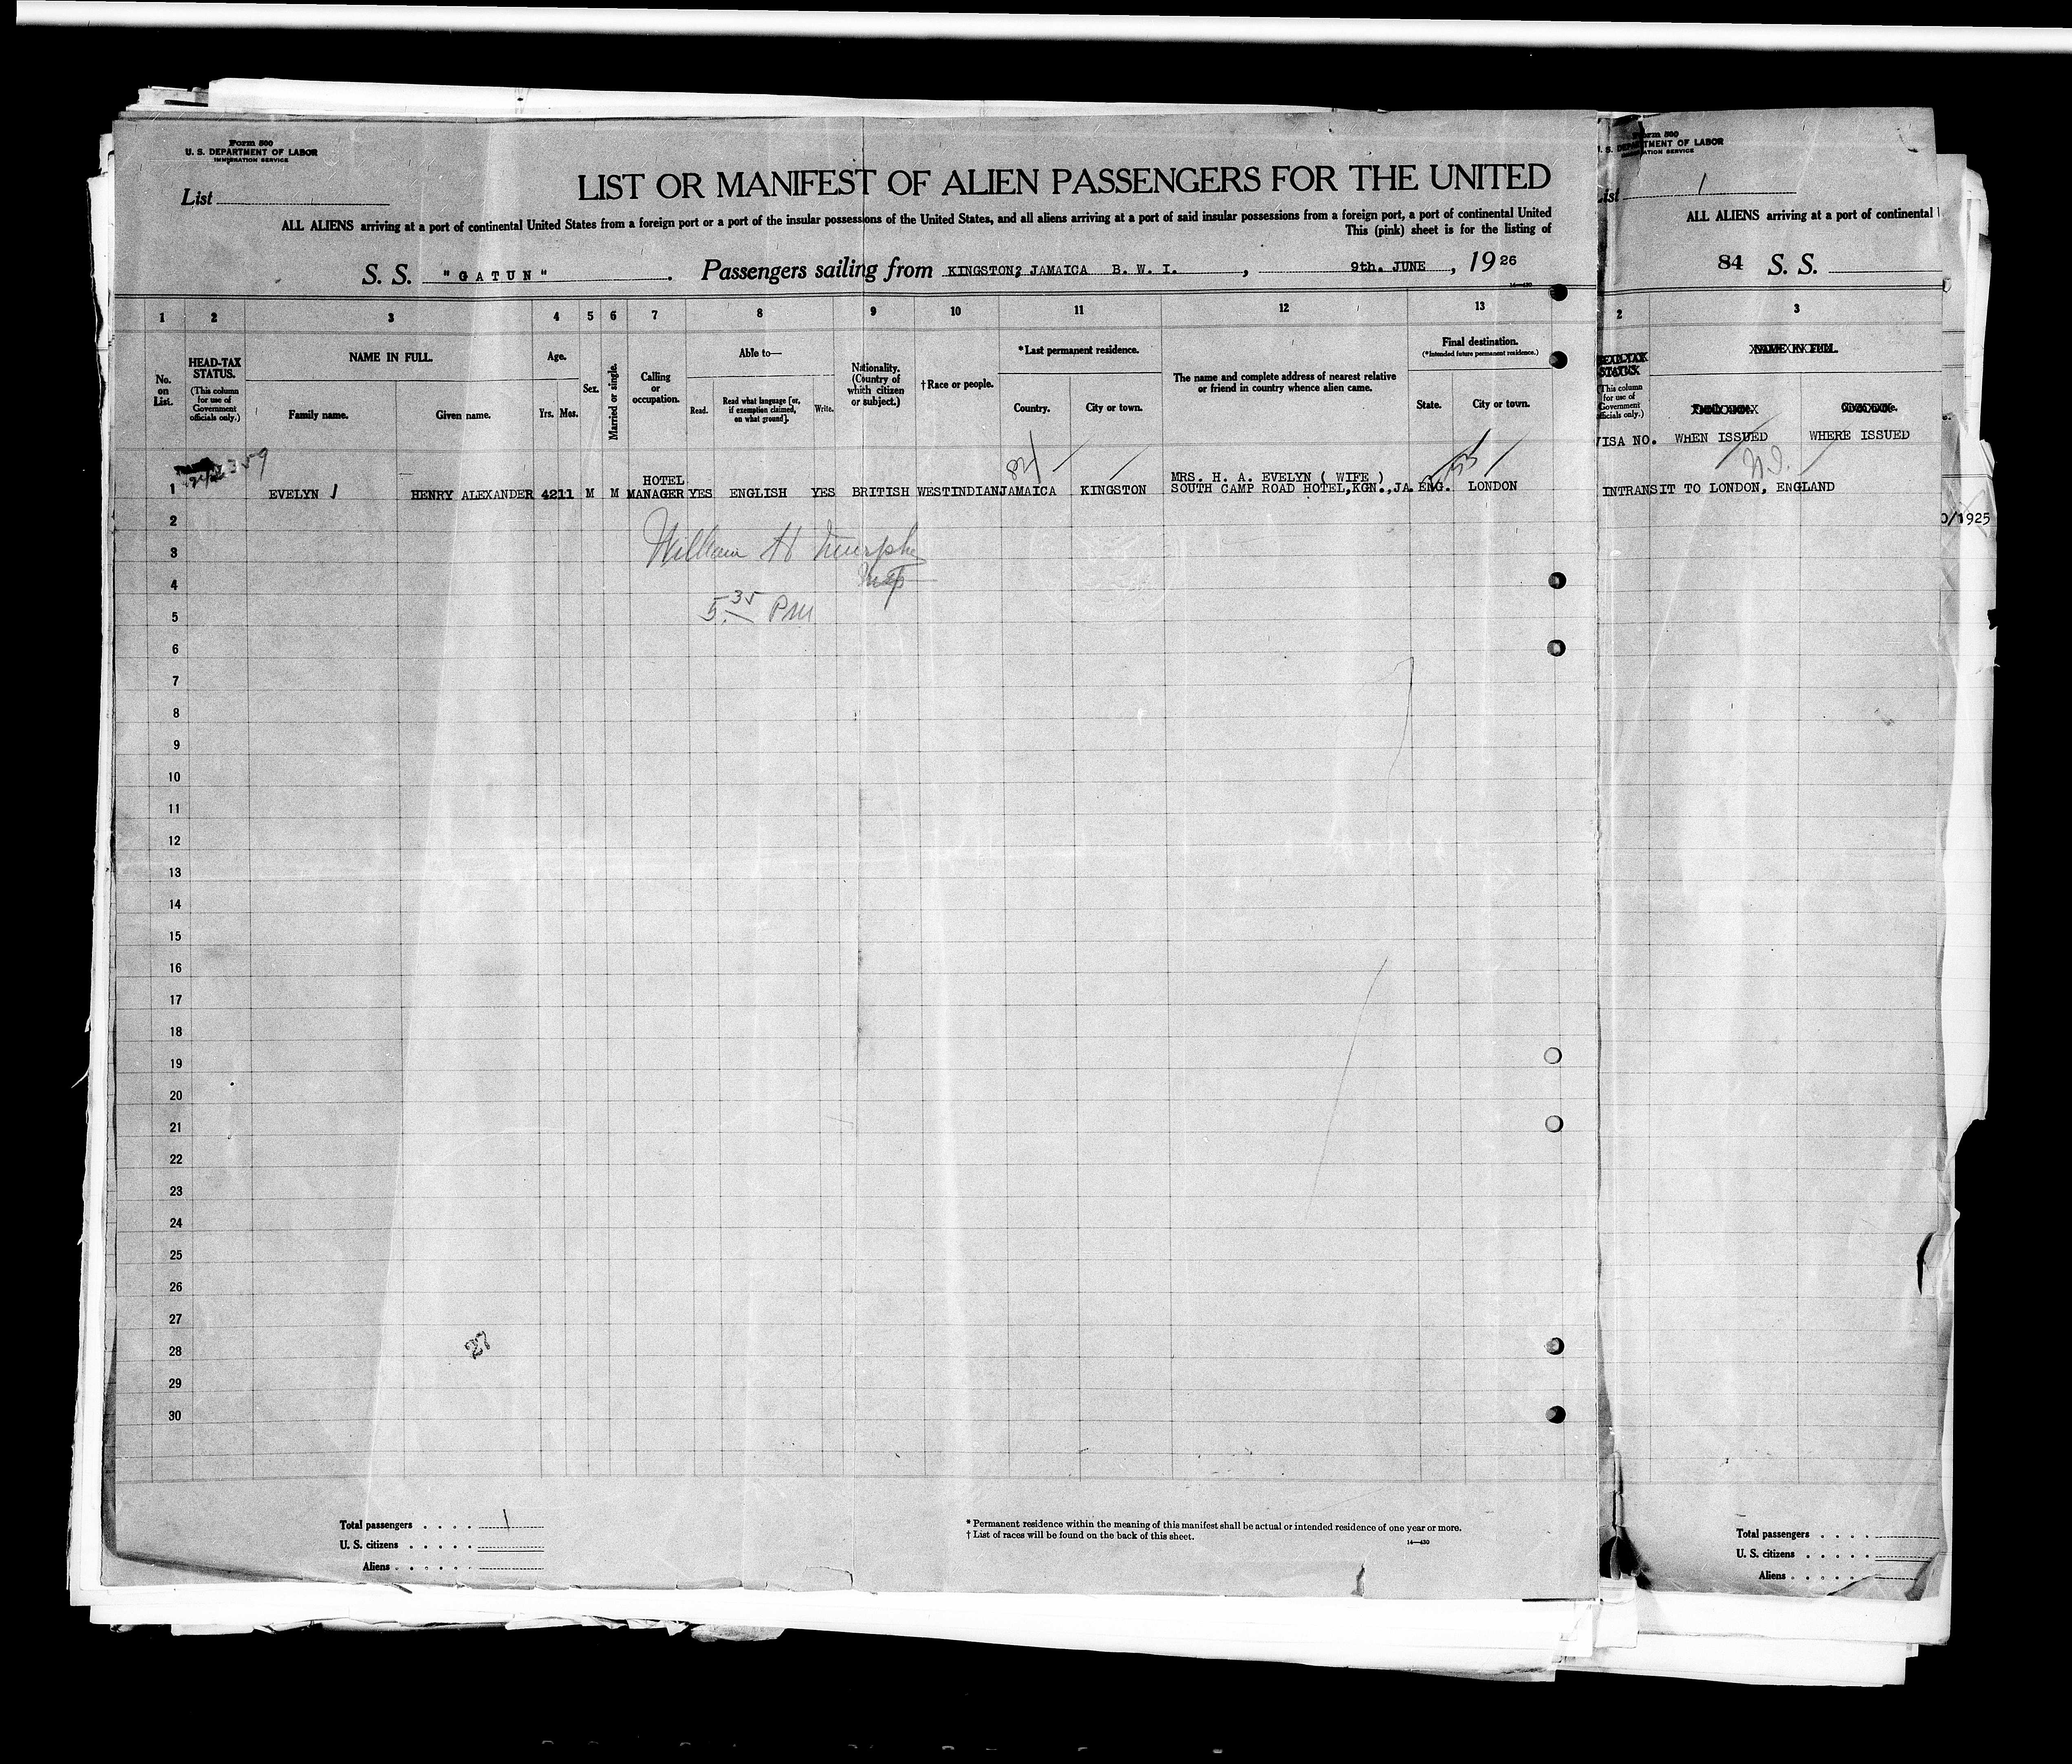 Form 500
U. S. DEPARTMENT OF LABOR
IMMIGRATION SERVICE
List
LIST OR MANIFEST OF ALIEN PASSENGERS FOR THE UNITED
ALL ALIENS arriving at a port of continental United States from a foreign port or a port of the insular possessions of the United States, and all aliens arriving at a port of said insular possessions from a foreign port, a port of continental United
This (pink) sheet is for the listing of
S. S. "GATUN" . Passengers sailing from KINGSTON, JAMAICA B. W. I. , 9th. JUNE , 1926
14—430
1 2 3 4 5 6 7 8 9 10 11 12 13
No. on List.
HEAD-TAX STATUS.
(This column for use of Government officials only.)
NAME IN FULL.
Family name. Given name.
Age.
Yrs. Mos.
Sex.
Married or single.
Calling or occupation.
Able to—
Read. Read what language [or, if exemption claimed, on what ground]. Write.
Nationality. (Country of which citizen or subject.)
†Race or people.
*Last permanent residence.
Country. City or town.
The name and complete address of nearest relative or friend in country whence alien came.
Final destination.
(*Intended future permanent residence.)
State. City or town.
359
84
1 EVELYN HENRY ALEXANDER 42 11 M M HOTEL MANAGER YES ENGLISH YES BRITISH WESTINDIAN JAMAICA KINGSTON MRS. H. A. EVELYN ( WIFE )
SOUTH CAMP ROAD HOTEL,KGN.,JA. ENG. LONDON
William H Murphy
5.35 PM
2
3
4
5
6
7
8
9
10
11
12
13
14
15
16
17
18
19
20
21
22
23
24
25
26
27
28
29
30
27
Total passengers . . . . 1
U. S. citizens . . . . .
Aliens . . . . . .
* Permanent residence within the meaning of this manifest shall be actual or intended residence of one year or more.
† List of races will be found on the back of this sheet.
14—430
Form 500
U. S. DEPARTMENT OF LABOR
IMMIGRATION SERVICE
List 1
ALL ALIENS arriving at a port of continental
84 S. S.
2 3
HEAD-TAX STATUS.
(This column for use of Government officials only.)
NAME IN FULL.
VISA NO. WHEN ISSUED WHERE ISSUED
INTRANSIT TO LONDON, ENGLAND
0/1925
Total passengers . . . .
U. S. citizens . . . . .
Aliens . . . . . .